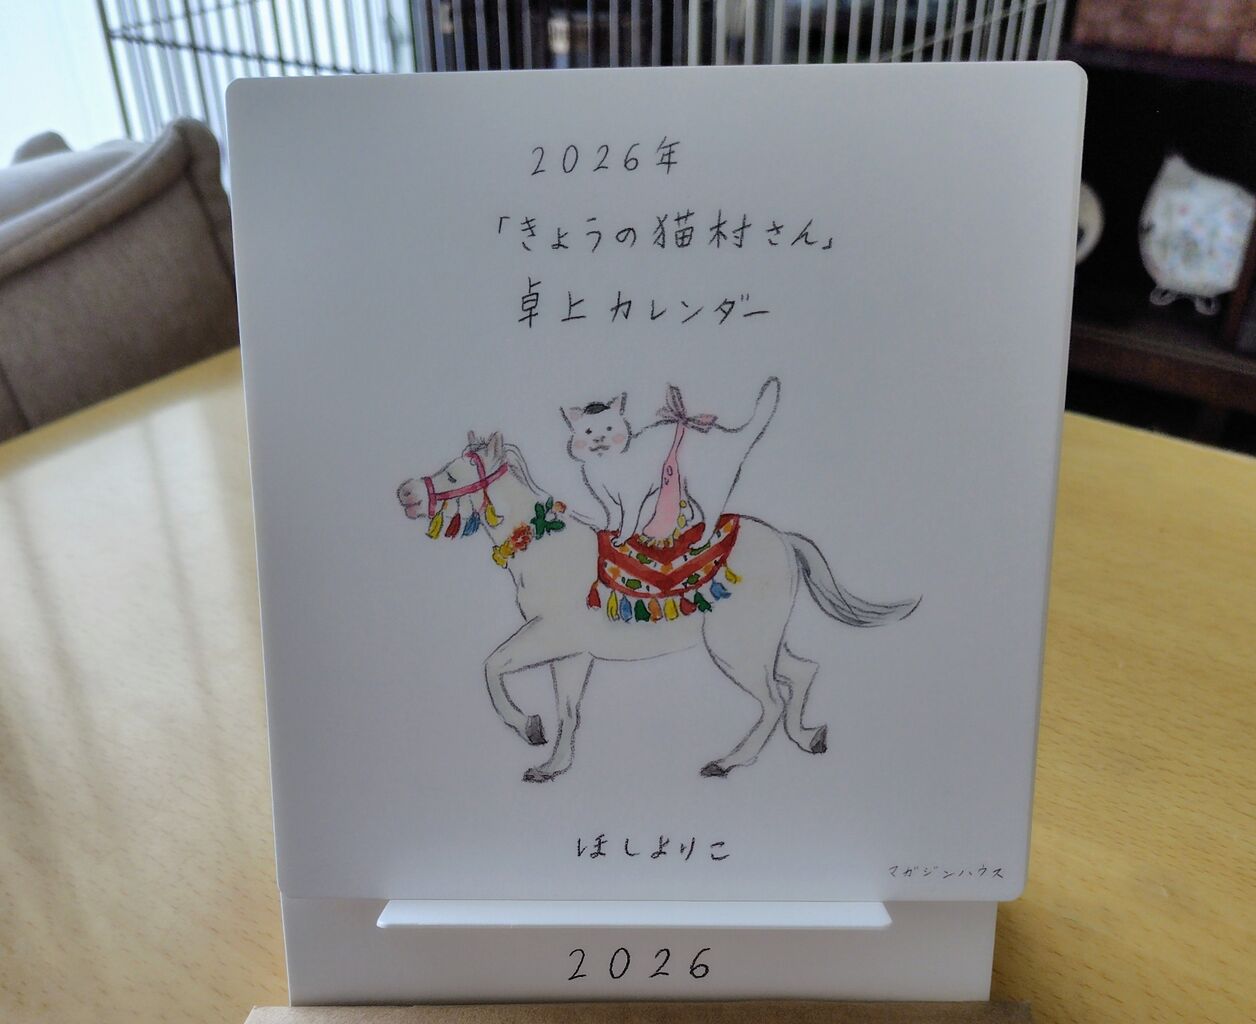 2026年
「きょうの猫村さん」
卓上カレンダー
ほしよりこ
マガジンハウス
2026